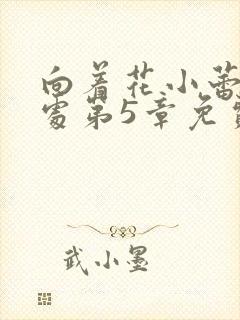 向着花小蕾
处第5章免费
武小墨